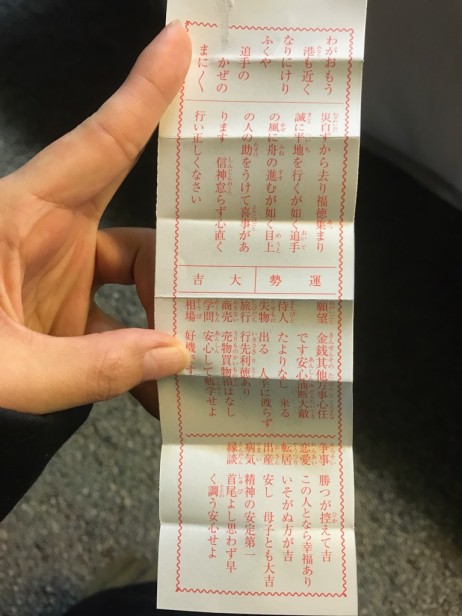 わがおもう
港も近く
なりにけり
ふくや
追手の
かぜの
まに〱
災自ずから去り福徳集まり
誠に平地を行くが如く追手
の風に舟の進むが如く目上
の人の助をうけて喜事があ
ります 信神怠らず心直く
行い正しくなさい
運勢 大吉
願望 金銭其他万事心任
です安心油断大敵
待人 たよりなし 来る
失物 出る 人手に渡らず
旅行 行先利徳あり
商売 売物買物損はなし
学問 安心して勉学せよ
相場 好機 す
争事 勝つが控えて吉
恋愛 この人となら幸福あり
転居 いそがぬ方が吉
出産 安し 母子とも大吉
病気 精神の安定第一
縁談 首尾よし思わず早
く調う安心せよ